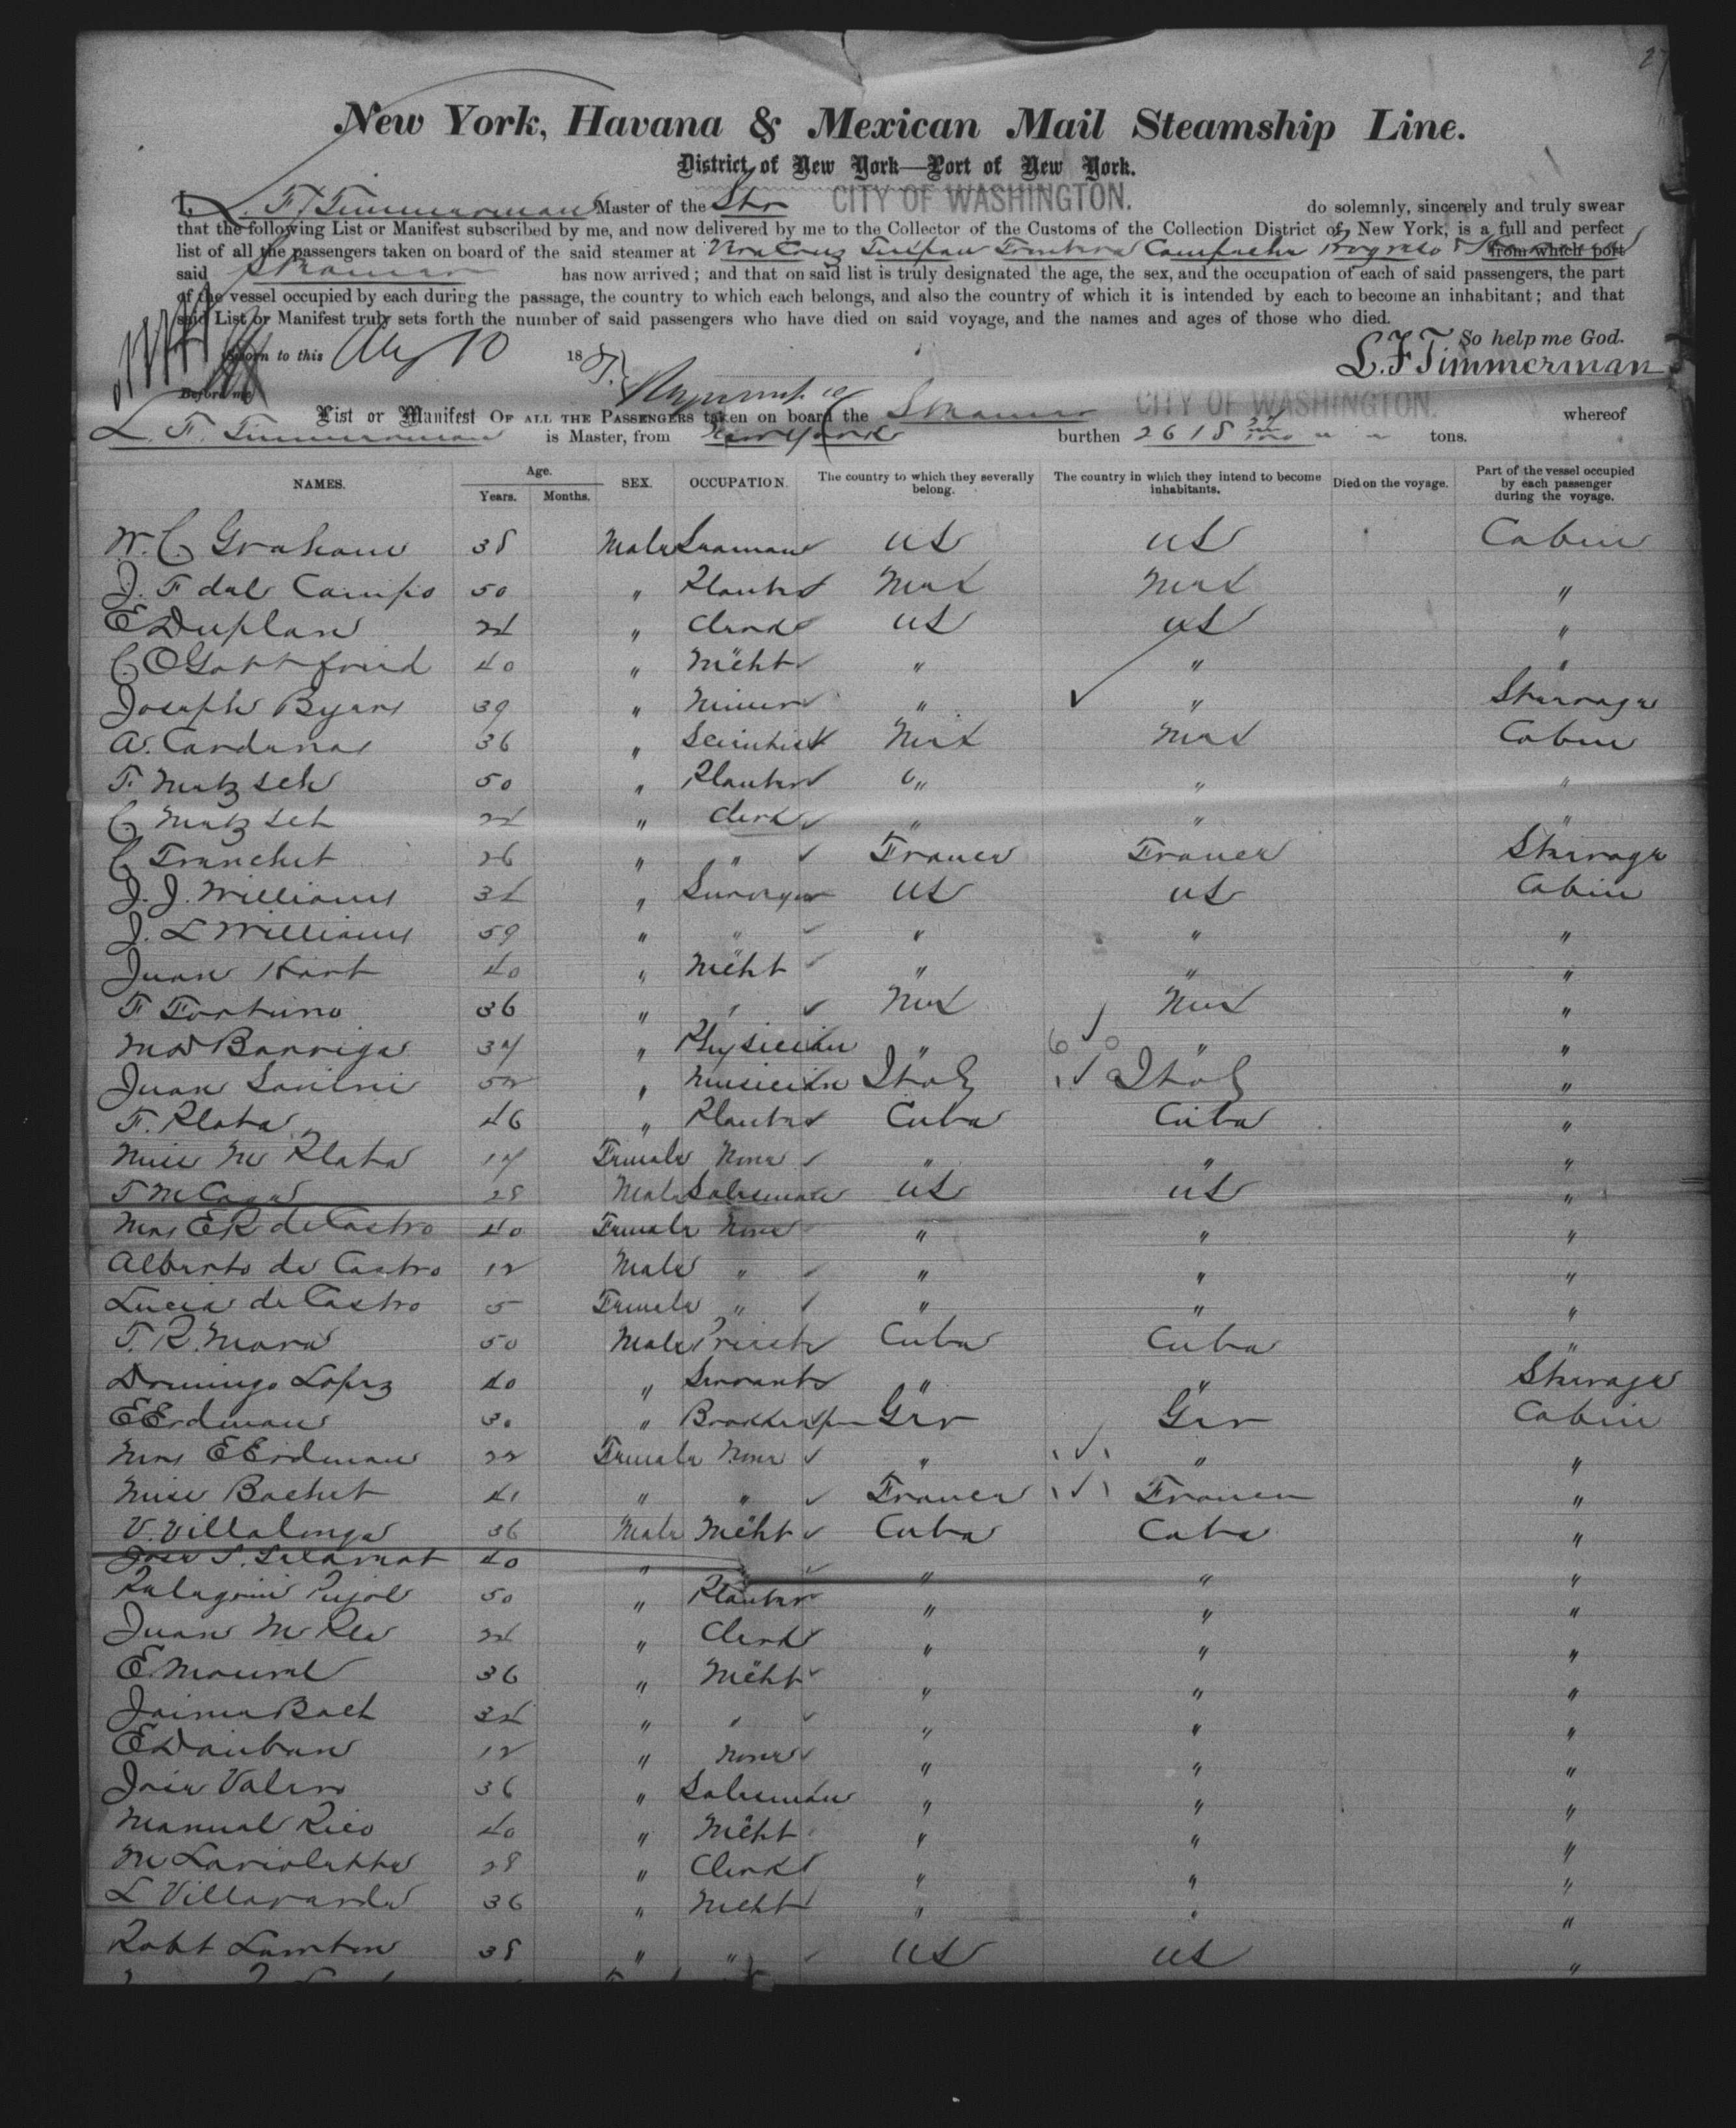 27
New York, Havana & Mexican Mail Steamship Line.
District of New York—Port of New York.
I, L. F. Timmerman Master of the Str CITY OF WASHINGTON. do solemnly, sincerely and truly swear
that the following List or Manifest subscribed by me, and now delivered by me to the Collector of the Customs of the Collection District of New York, is a full and perfect
list of all the passengers taken on board of the said steamer at Vera Cruz Tuxpan Frontera Campeche Progreso & from which port
said Steamer has now arrived; and that on said list is truly designated the age, the sex, and the occupation of each of said passengers, the part
of the vessel occupied by each during the passage, the country to which each belongs, and also the country of which it is intended by each to become an inhabitant; and that
said List or Manifest truly sets forth the number of said passengers who have died on said voyage, and the names and ages of those who died.
So help me God.
Sworn to this Aug 10 188
L. F. Timmerman
Before me
List or Manifest OF ALL THE PASSENGERS taken on board the Steamer CITY OF WASHINGTON. whereof
L. F. Timmerman is Master, from New York burthen 2618 tons.
NAMES. Age. Years. Months. SEX. OCCUPATION. The country to which they severally belong. The country in which they intend to become inhabitants. Died on the voyage. Part of the vessel occupied by each passenger during the voyage.
W. C. Graham 38 Male Seaman US US Cabin
J. F del Campo 50 " Planter Mex Mex "
E Duplan 24 " Clerk US US "
C. O Gottfried 40 " Mcht " " "
Joseph Byers 39 " Miner " " Steerage
A. Cardenas 36 " Scientist Mex Mex Cabin
F. Metzsch 50 " Planter " " "
C Metzsch 24 " Clerk " " "
C Tranchet 26 " " France France Steerage
J. J. Williams 34 " Surveyor US US Cabin
J. L Williams 59 " " " " "
Juan Hart 40 " Mcht " " "
F Fortuno 36 " " Mex Mex "
M Barriga 34 " Physician " " "
Juan 52 " Musician Italy Italy "
F. Plata 46 " Planter Cuba Cuba "
Miss M Plata 17 Female None " " "
T McCague 28 Male Salesman US US "
Mrs E R de Castro 40 Female None " " "
Alberto de Castro 12 Male " " " "
Lucia de Castro 5 Female " " " "
T. R. Mora 50 Male Priest Cuba Cuba "
Domingo Lopez 40 " Servant " " Steerage
E Erdman 30 " Bookkeeper Ger Ger Cabin
Mrs E Erdman 22 Female None " " "
Miss Bachet 41 " " France France "
V. Villalonga 36 Male Mcht Cuba Cuba "
Jose S. 40 " " " "
Pelegrin Pujol 50 " Planter " " "
Juan M Rea 24 " Clerk " " "
E. 36 " Mcht " " "
Jaime Bach 34 " " " " "
E Dauban 12 " None " " "
Jose Valero 36 " Salesman " " "
Manuel Rico 40 " Mcht " " "
M Lariolette 28 " Clerk " " "
L Villaverde 36 " Mcht " " "
Robt Lamton 38 " " US US "